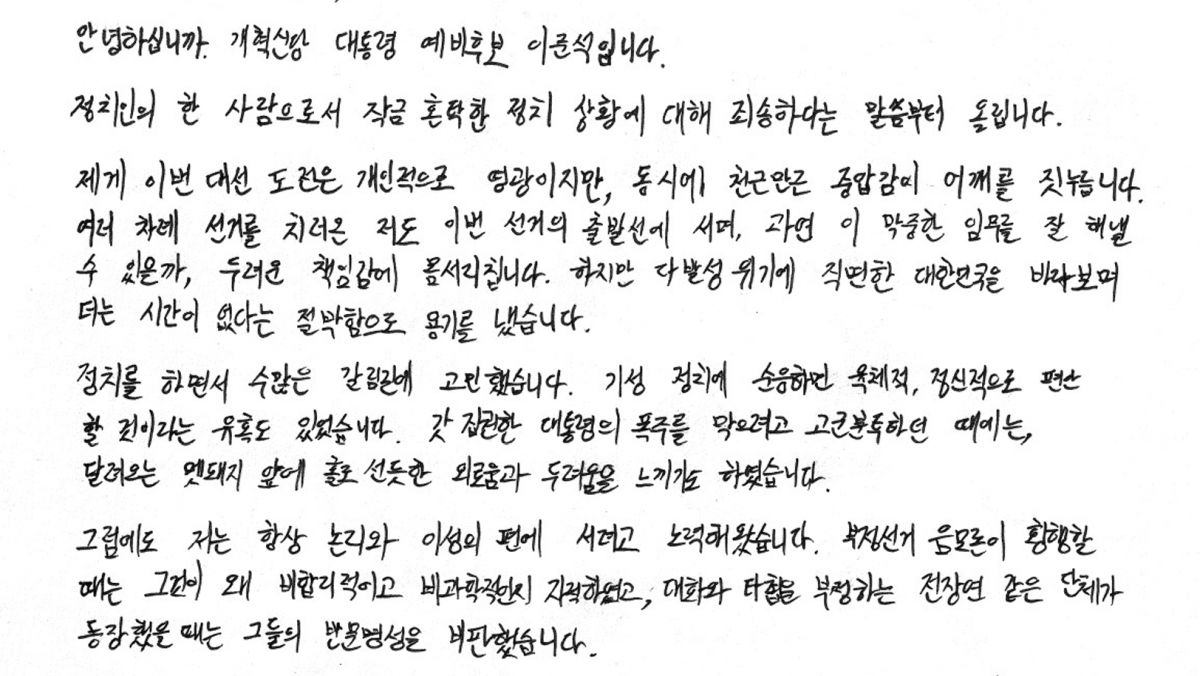 안녕하십니까. 개혁신당 대통령 예비후보 이준석입니다.
정치인의 한 사람으로서 작금 혼탁한 정치 상황에 대해 죄송하다는 말씀부터 올립니다.
제게 이번 대선 도전은 개인적으로 영광이지만, 동시에 천근만근 중압감이 어깨를 짓누릅니다.
여러 차례 선거를 치러온 저도 이번 선거의 출발선에 서며, 과연 이 막중한 임무를 잘 해낼
수 있을까, 두려운 책임감에 몸서리칩니다. 하지만 다발성 위기에 직면한 대한민국을 바라보며
더는 시간이 없다는 절박함으로 용기를 냈습니다.
정치를 하면서 수많은 갈림길에 고민했습니다. 기성 정치에 순응하면 육체적, 정신적으로 편안
할 것이라는 유혹도 있었습니다. 갓 집권한 대통령의 폭주를 막으려고 고군분투하던 때에는,
달려오는 멧돼지 앞에 홀로 선듯한 외로움과 두려움을 느끼기도 하였습니다.
그럼에도 저는 항상 논리와 이성의 편에 서려고 노력해왔습니다. 부정선거 음모론이 횡행할
때는 그것이 왜 비합리적이고 비과학적인지 지적하였고, 대화와 타협을 부정하는 전장연 같은 단체가
등장했을 때는 그들의 반문명성을 비판했습니다.